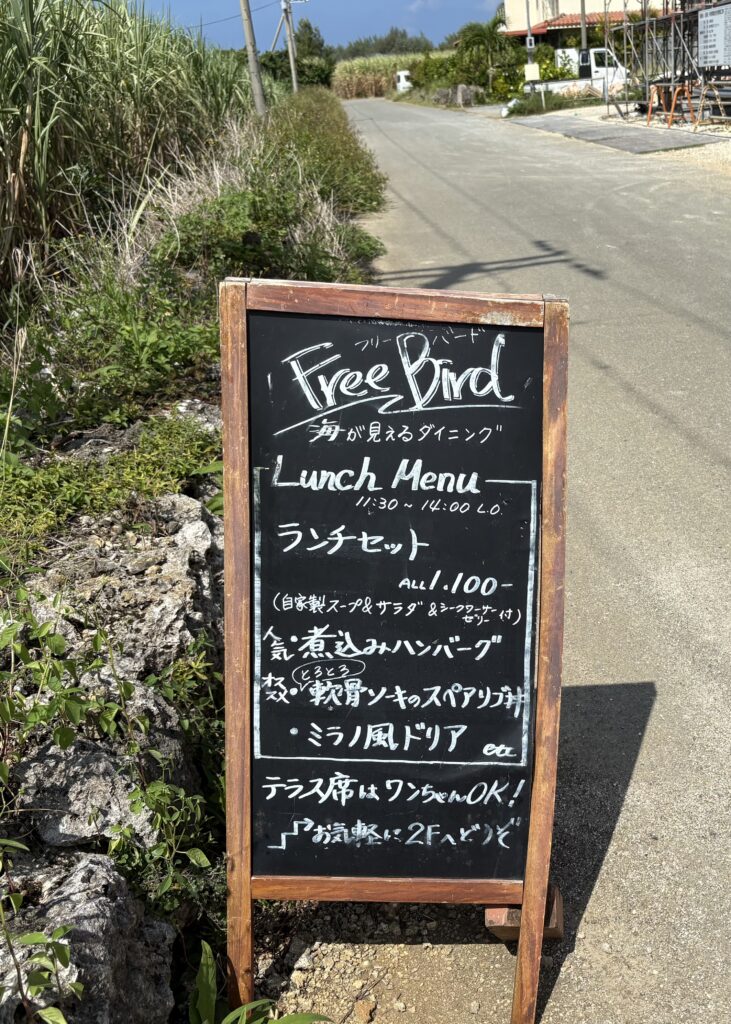 フリーバード
Free Bird
海が見えるダイニング
Lunch Menu
11:30 ~ 14:00 L.O.
ランチセット
ALL 1.100-
(自家製スープ&サラダ&シークワーサーゼリー付)
人気・煮込みハンバーグ
とろとろ
オススメ・軟骨ソキのスペアリブ丼
・ミラノ風ドリア etc
テラス席はワンちゃんOK!
お気軽に2Fへどうぞ